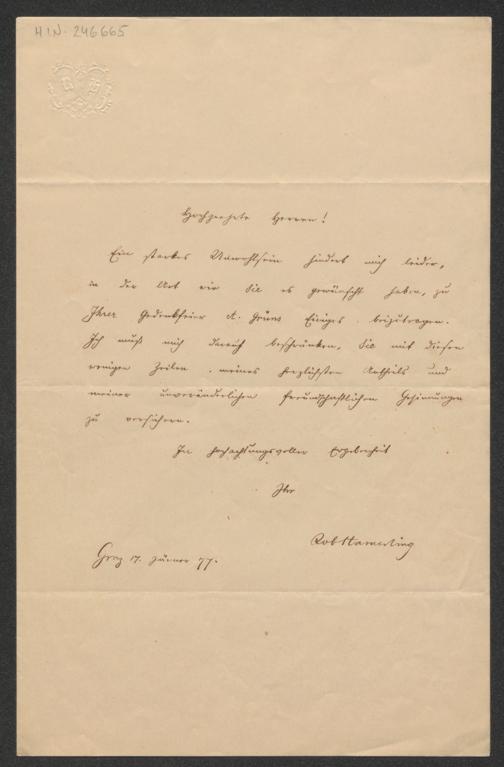 HIN-246665
Hochgeehrte Herren!
Ein starkes Unwohlsein hindert mich leider,
in der Art wie Sie es gewünscht haben, zu
Ihrer Gedenkfeier A. Grüns Einiges beizutragen.
Ich muß mich darauf beschränken, Sie mit diesen
wenigen Zeilen meines herzlichsten Antheils und
meiner unveränderlichen freundschaftlichen Gesinnungen
zu versichern.
In hochachtungsvoller Ergebenheit
Ihr
Rob Hamerling
Graz 17. Jänner 77.